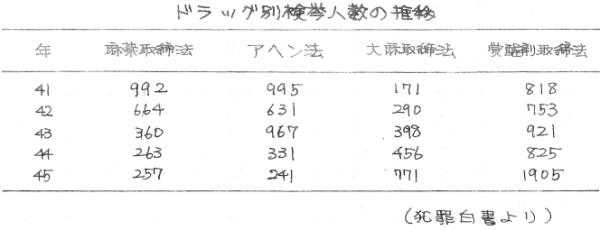 ドラッグ別検挙人数の推移
年 麻薬取締法 アヘン法 大麻取締法 覚醒剤取締法
41 992 995 171 818
42 664 631 290 753
43 360 967 398 921
44 263 331 456 825
45 257 241 771 1905
(犯罪白書より)